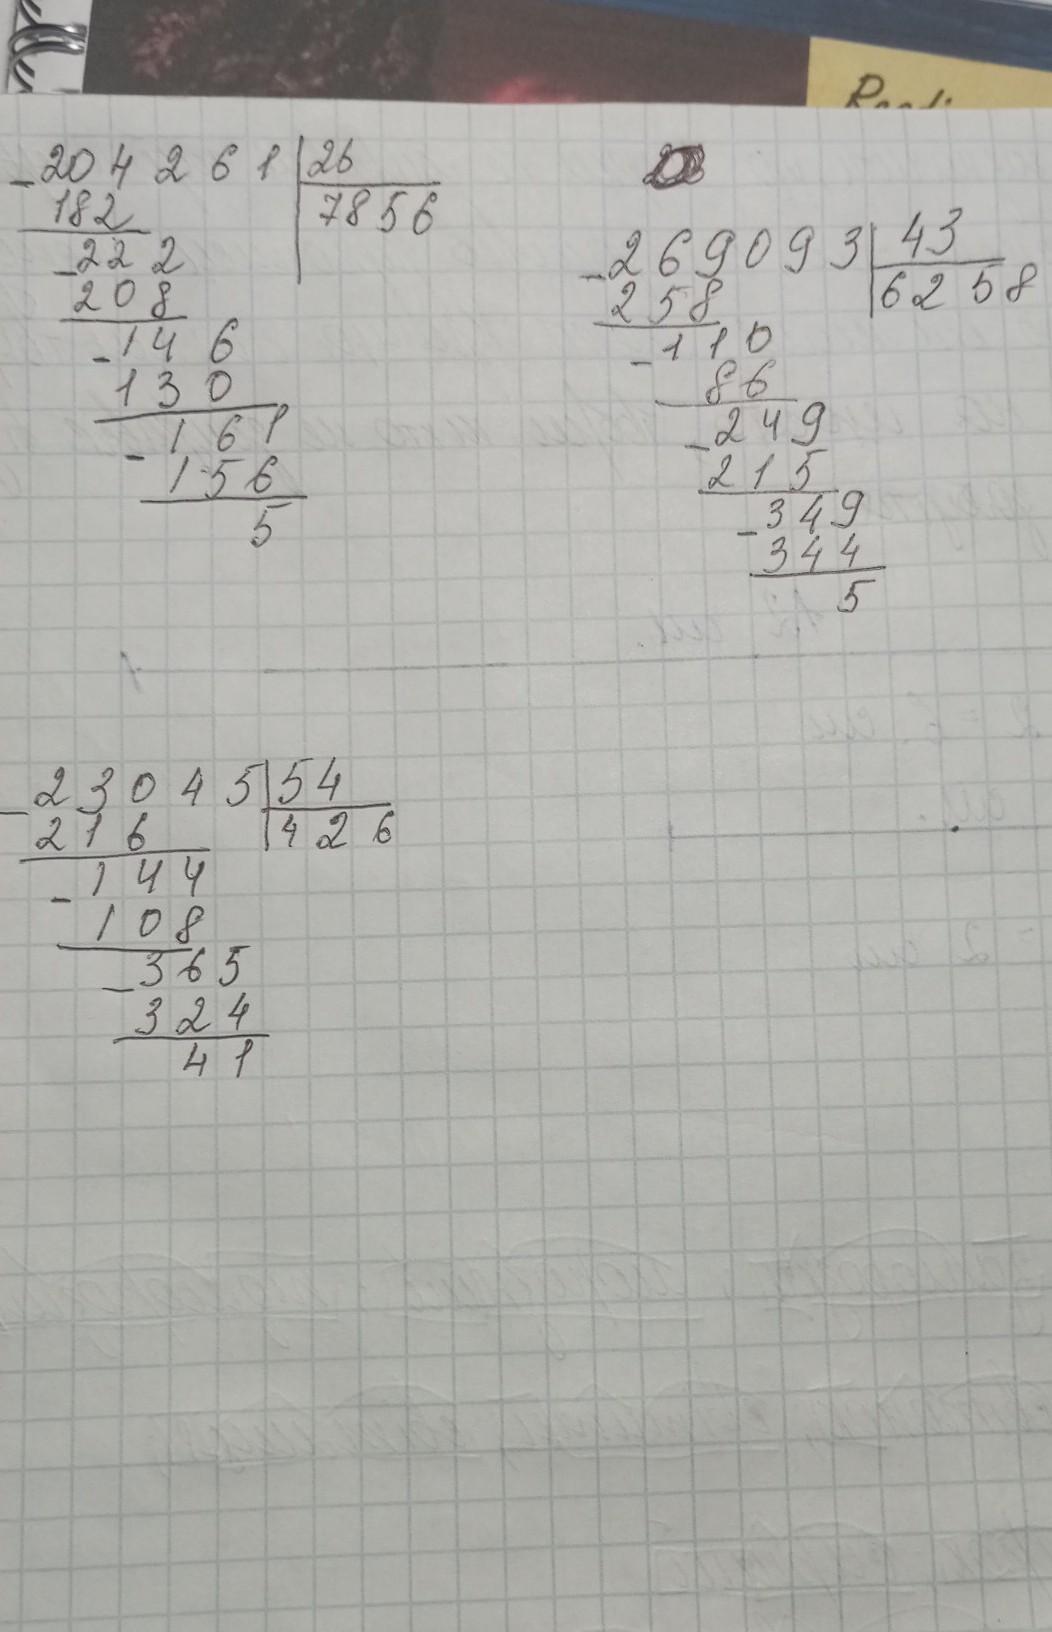 Readi
204261 | 26
182 | 7856
222
208
146
130
161
156
5
269093 | 43
258 | 6258
110
86
249
215
349
344
5
23045 | 54
216 | 426
144
108
365
324
41